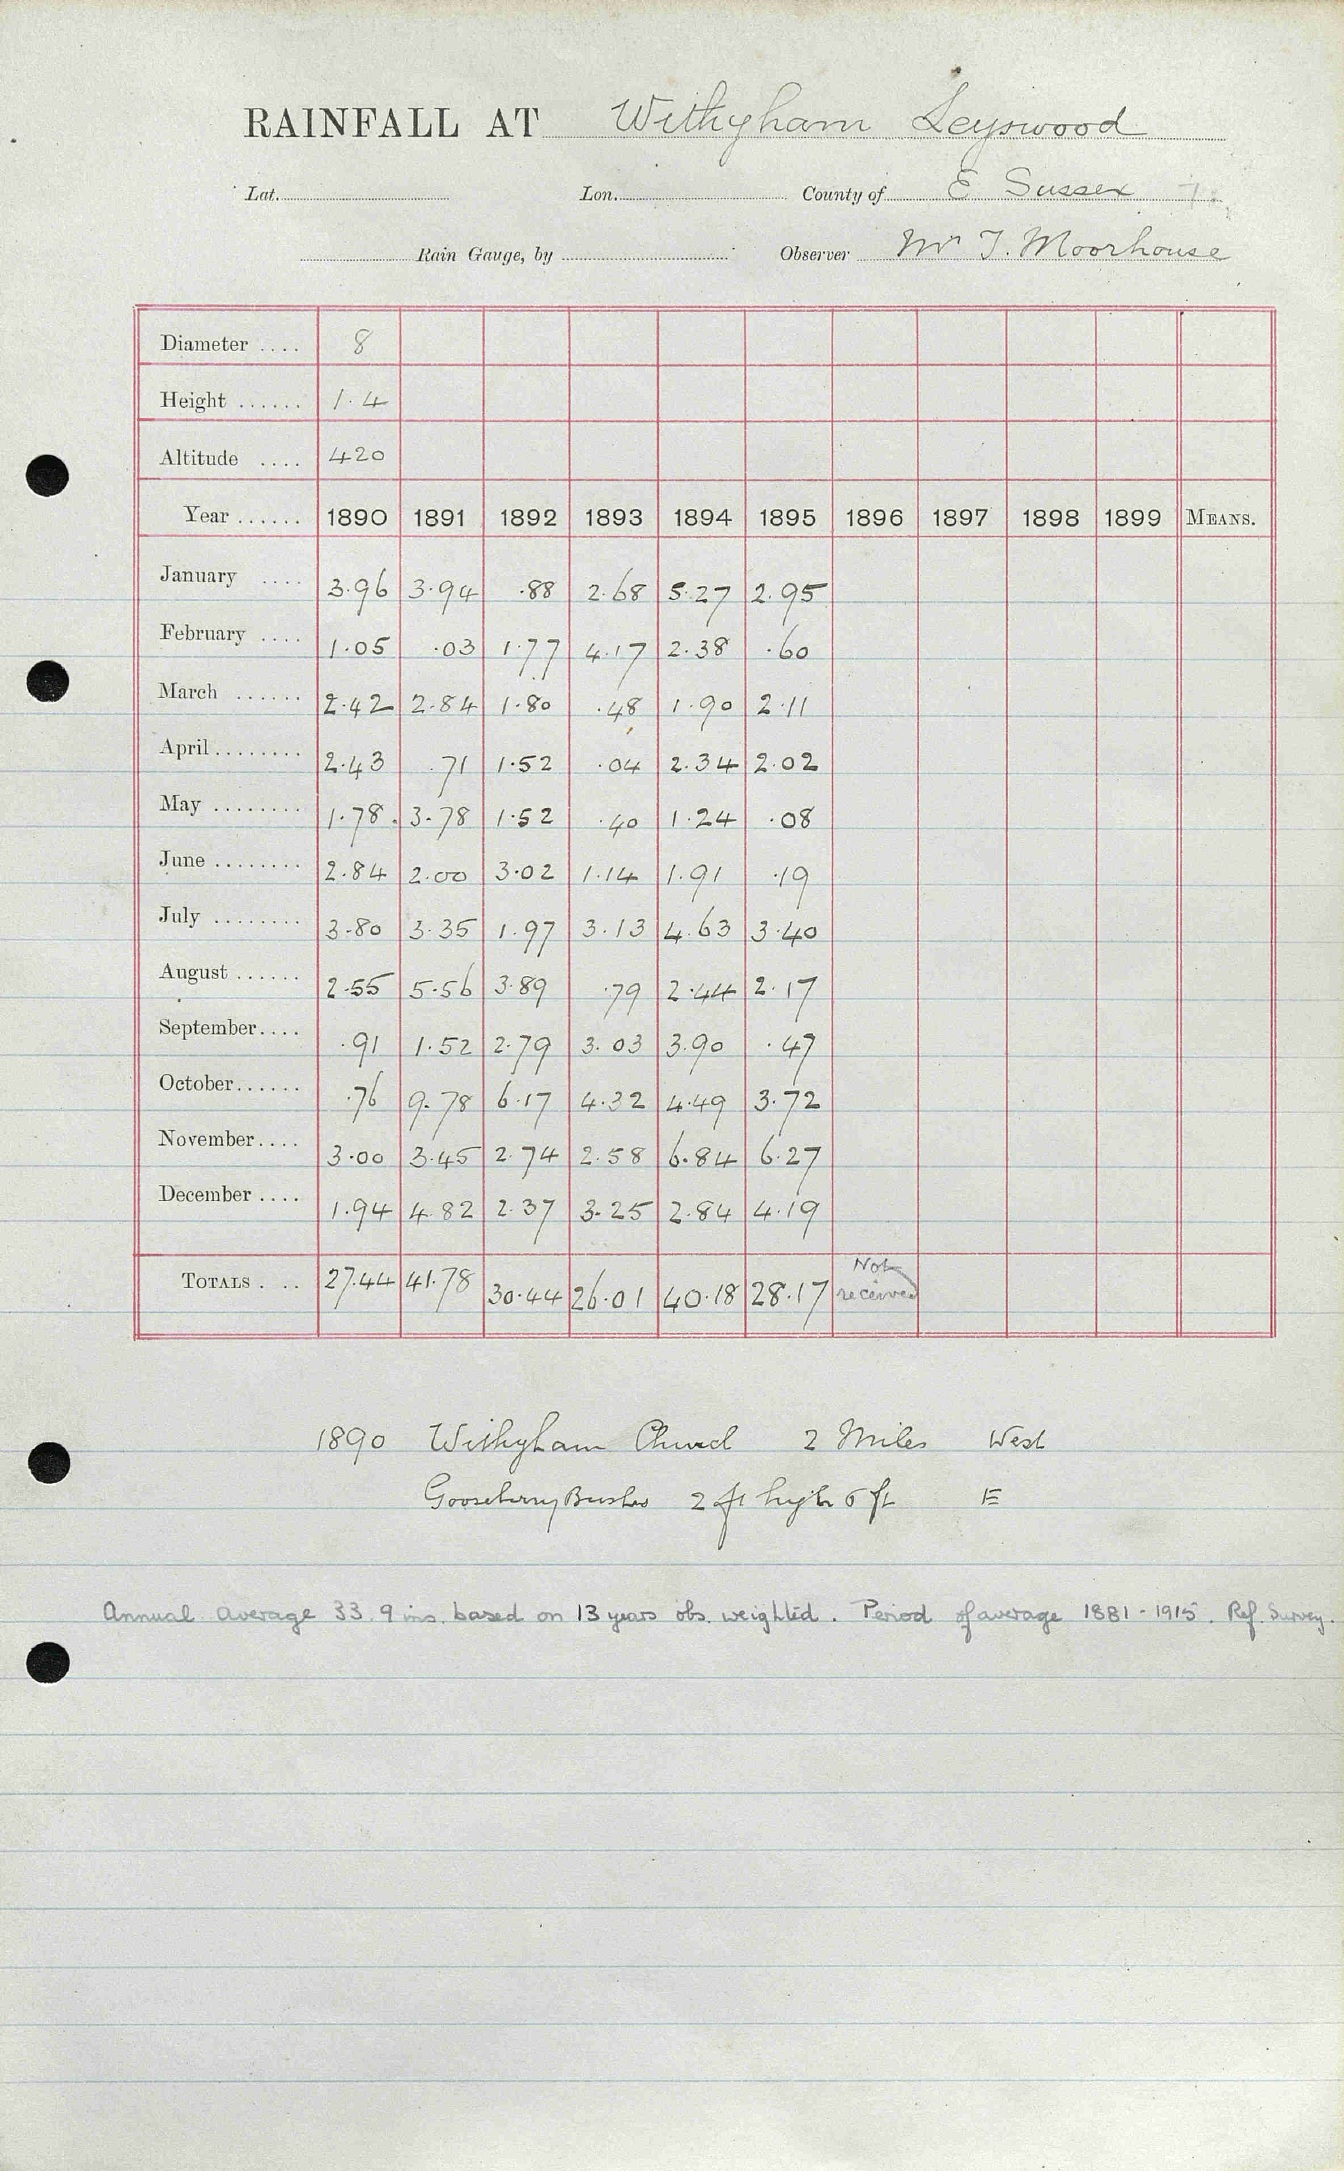 RAINFALL AT Withyham Leyswood
Lat. Lon. County of E Sussex
Rain Gauge, by Observer Mr T. Moorhouse
Diameter .... 8
Height ...... 1.4
Altitude .... 420
Year ...... 1890 1891 1892 1893 1894 1895 1896 1897 1898 1899 MEANS.
January .... 3.96 3.94 .88 2.68 5.27 2.95
February .... 1.05 .03 1.77 4.17 2.38 .60
March ...... 2.42 2.84 1.80 .48 1.90 2.11
April ........ 2.43 .71 1.52 .04 2.34 2.02
May ........ 1.78. 3.78 1.52 .40 1.24 .08
June ........ 2.84 2.00 3.02 1.14 1.91 .19
July ........ 3.80 3.35 1.97 3.13 4.63 3.40
August ...... 2.55 5.56 3.89 .79 2.44 2.17
September .... .91 1.52 2.79 3.03 3.90 .47
October ...... .76 9.78 6.17 4.32 4.49 3.72
November .... 3.00 3.45 2.74 2.58 6.84 6.27
December .... 1.94 4.82 2.37 3.25 2.84 4.19
TOTALS . .. 27.44 41.78 30.44 26.01 40.18 28.17 Not received
1890 Withyham Church 2 Miles West
Gooseberry Bushes 2 ft high 6 ft E
Annual average 33.9 ins. based on 13 years obs. weighted. Period of average 1881-1915. Ref. Survey.